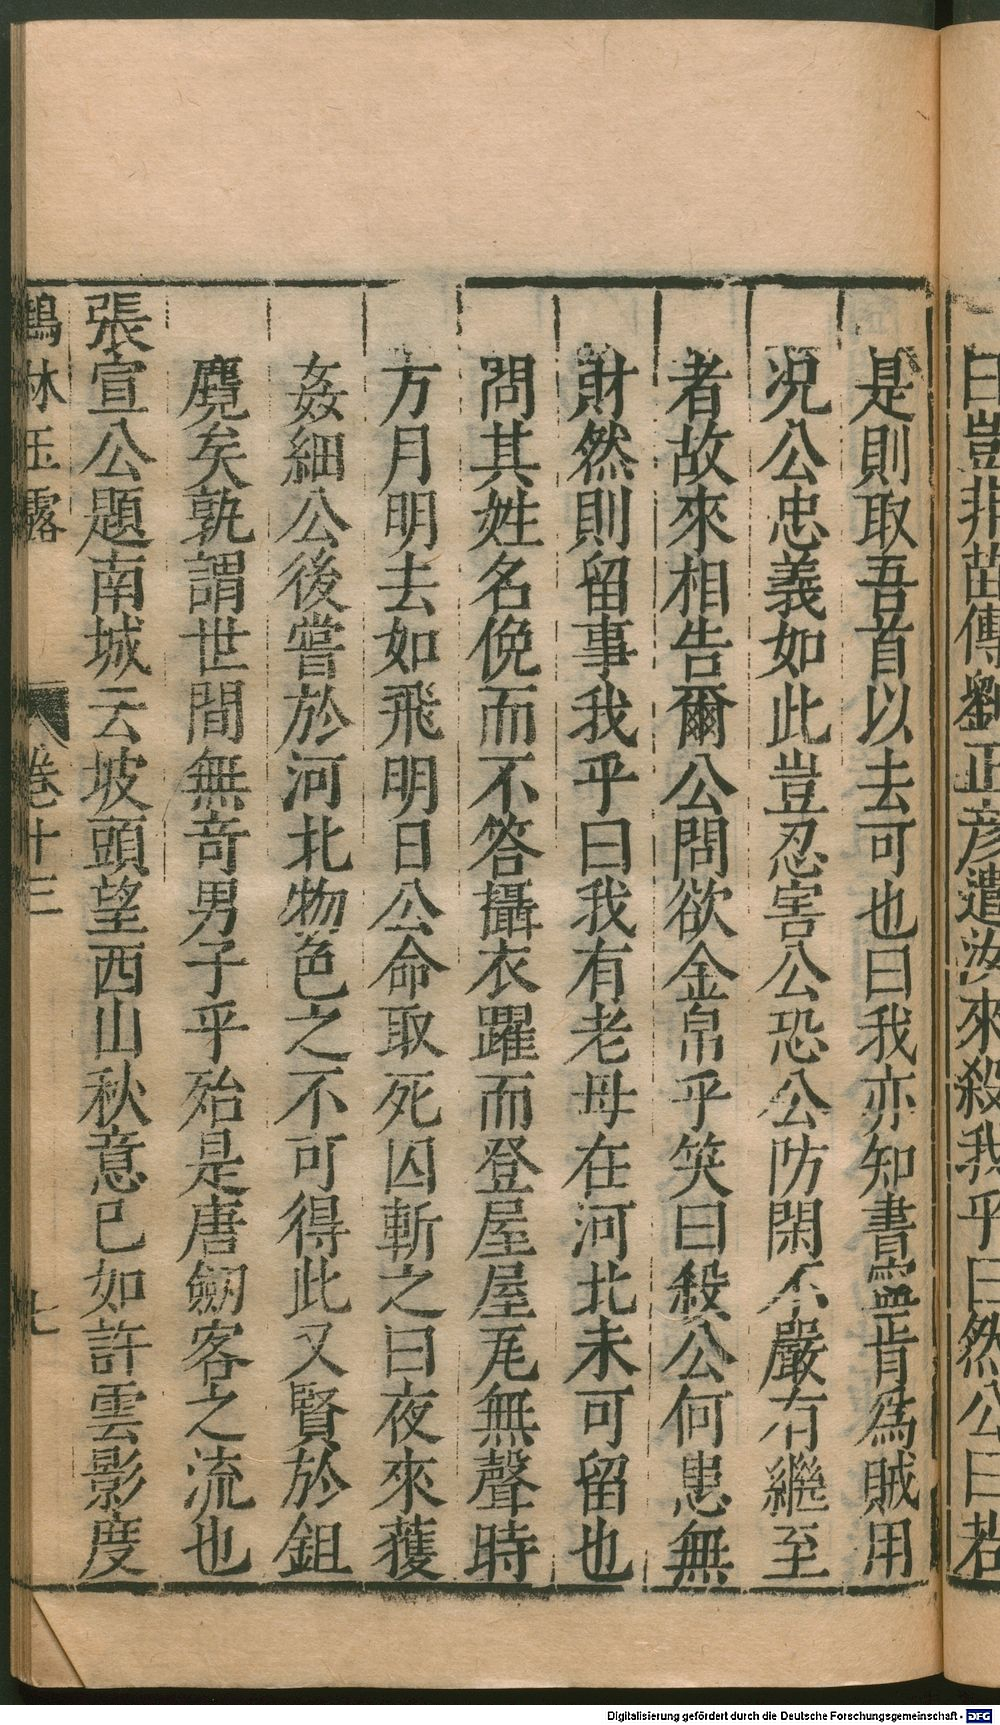 曰豈非苗傅劉正彦遣汝來殺我乎曰然公曰若
是則取吾首以去可也曰我亦知書寧肯爲賊用
况公忠義如此豈忍害公恐公防閑不嚴有繼至
者故來相告爾公問欲金帛乎笑曰殺公何患無
財然則留事我乎曰我有老母在河北未可留也
問其姓名俛而不答攝衣躍而登屋屋瓦無聲時
方月明去如飛明日公命取死囚斬之曰夜來獲
姦細公後嘗於河北物色之不可得此又賢於鉏
麑矣孰謂世間無竒男子乎殆是唐劒客之流也
張宣公題南城云坡頭望西山秋意已如許雲影度
鶴林玉露 卷十三 七
Digitalisierung gefördert durch die Deutsche Forschungsgemeinschaft - DFG